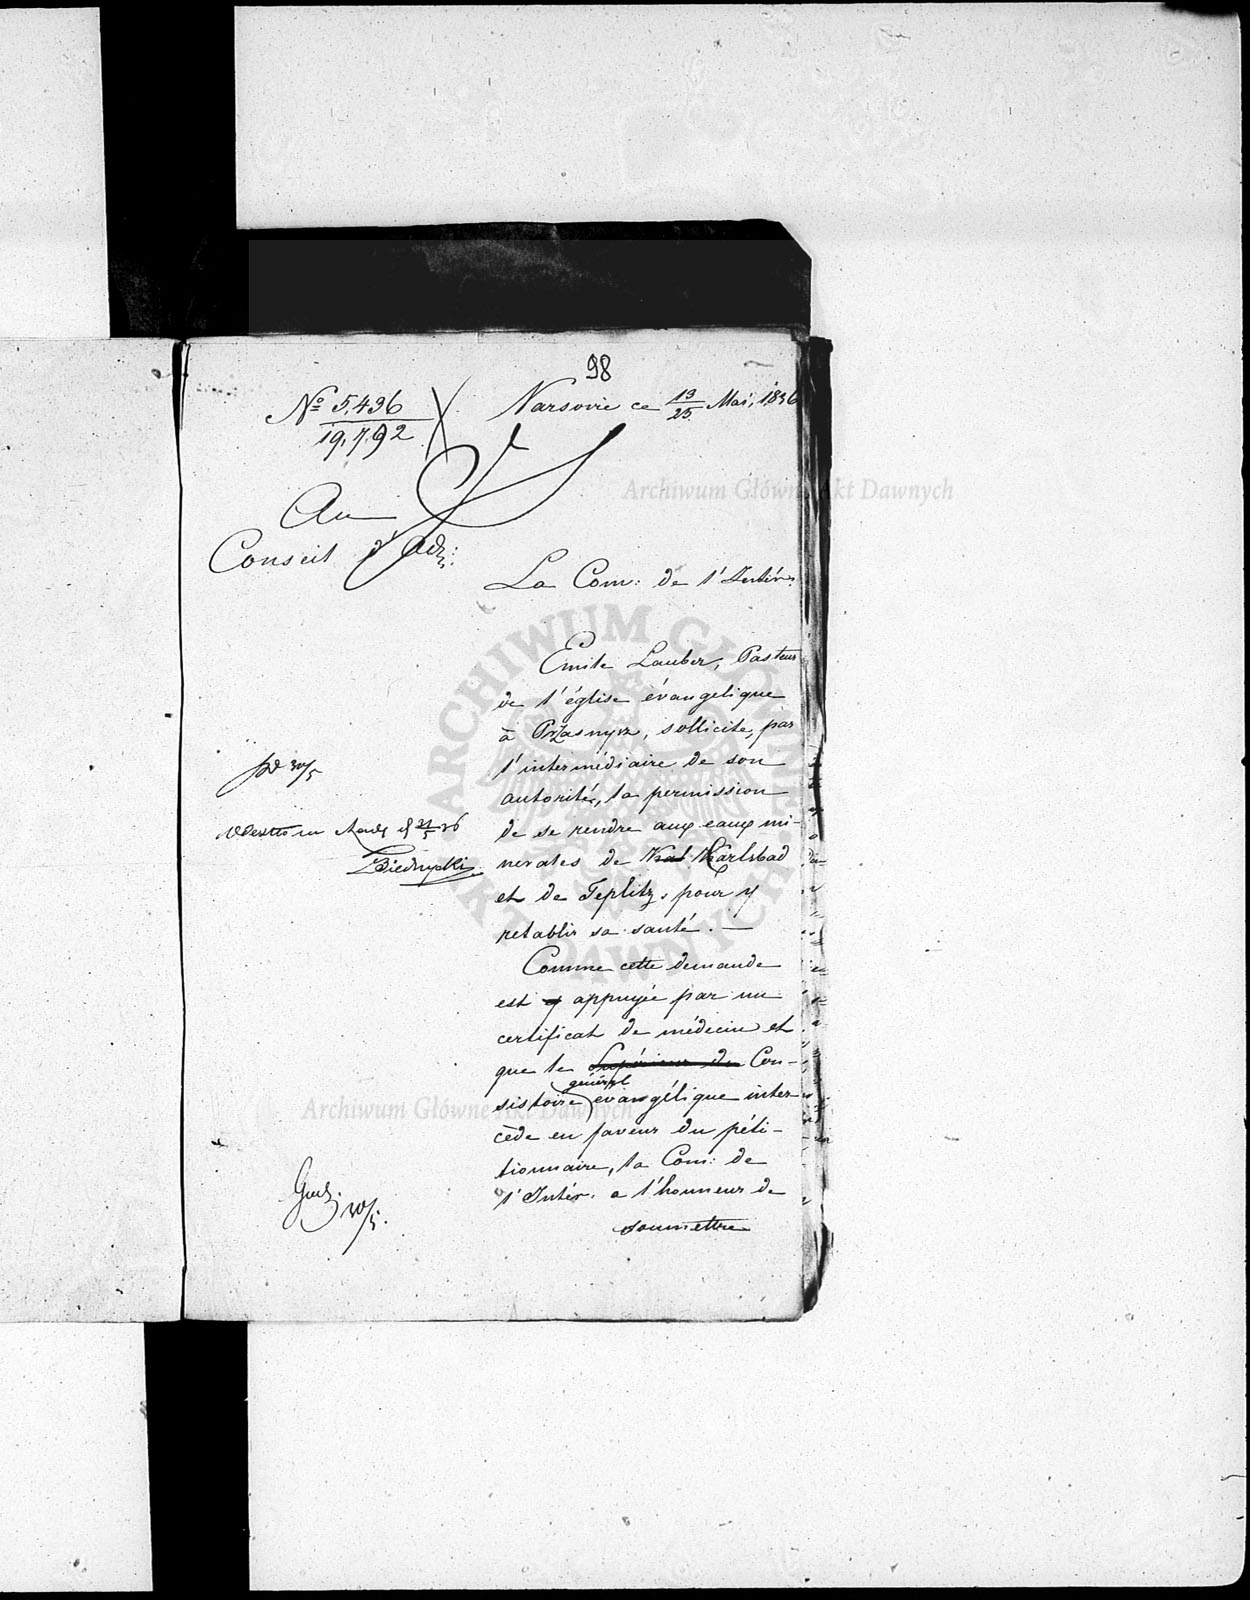 98
Nº 5,496
19,792
Varsovie ce 13/25 Mai, 1836
Au
Conseil d'Adm:
La Com: de l'Intér:
Emile Lauber, Pasteur
de l'église évangelique
à Przasnysz, sollicite, par
l'intermédiaire de son
autorité, la permission
de se rendre aux eaux mi-
nerales de Karlsbad
et de Teplitz, pour y
retablir sa santé. —
Comme cette demande
est appuyée par un
certificat de médecin et
que le Supérieur du Con-
général
sistoire évangélique inter
cède en faveur du péti-
tionnaire, la Com: de
l'Intér: a l'honneur de
soumettre
Archiwum Główne Akt Dawnych
ARCHIWUM GŁÓWNE AKT DAWNYCH
Archiwum Główne Akt Dawnych